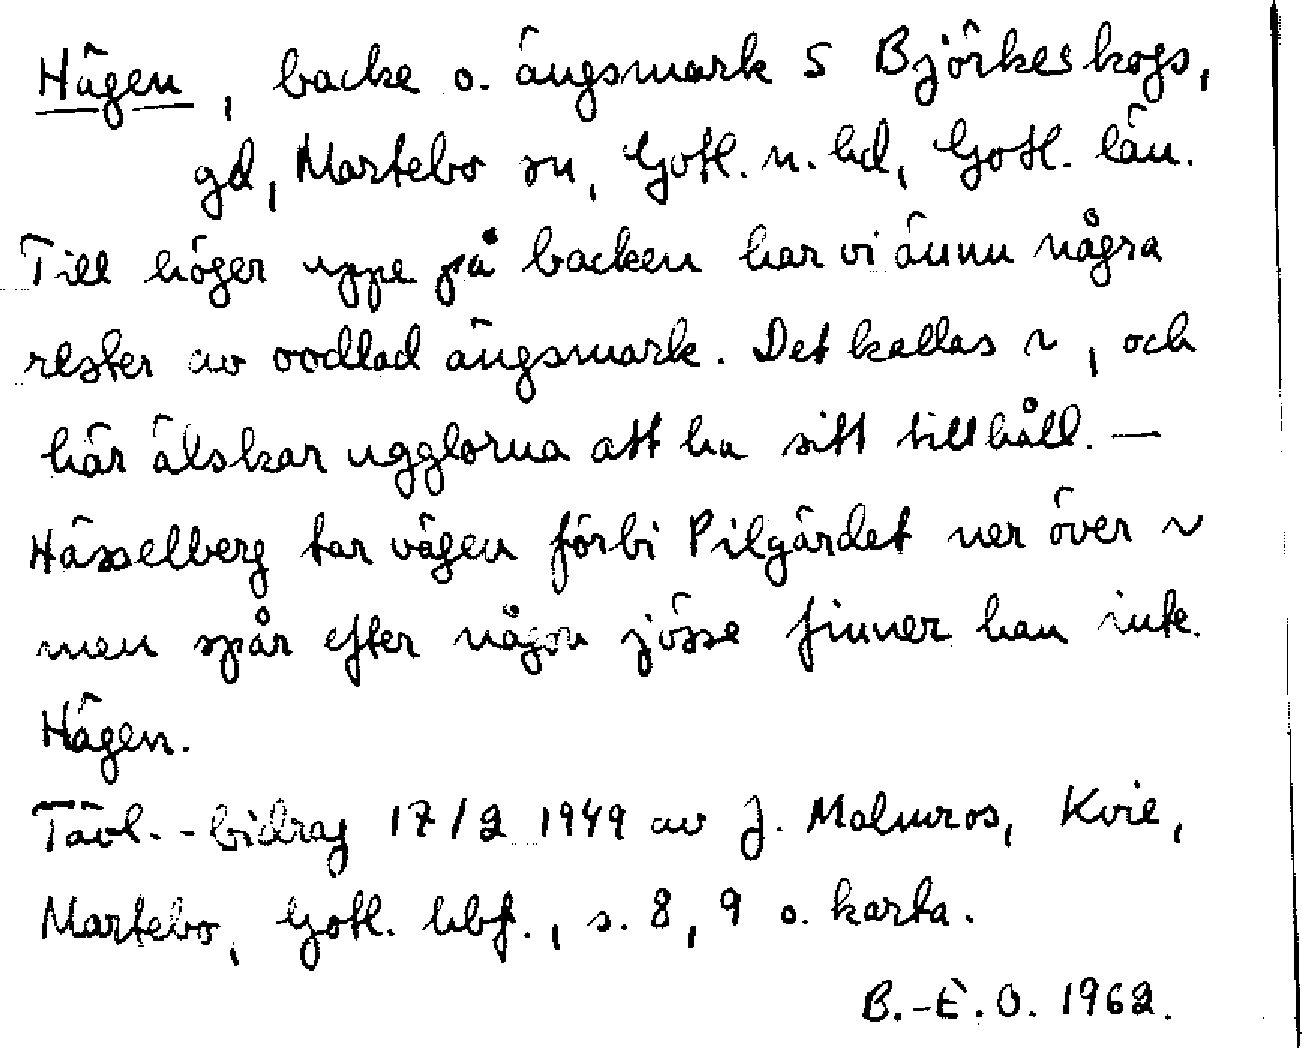 Hägen, backe o. ängsmark S Björkeskogs,
gd, Martebo sn, Gotl. n. hd, Gotl. län.
Till höger uppe på backen har vi ännu några
rester av oodlad ängsmark. Det kallas ~, och
här älskar ugglorna att ha sitt tillhåll. —
Hässelberg tar vägen förbi Pilgärdet ner över ~
men spår efter någon jösse finner han inte.
Hägen.
Tävl.-bidrag 17/2 1949 av J. Malmros, Kvie,
Martebo, Gotl. hbf., s. 8, 9 o. karta.
B.-E. O. 1962.